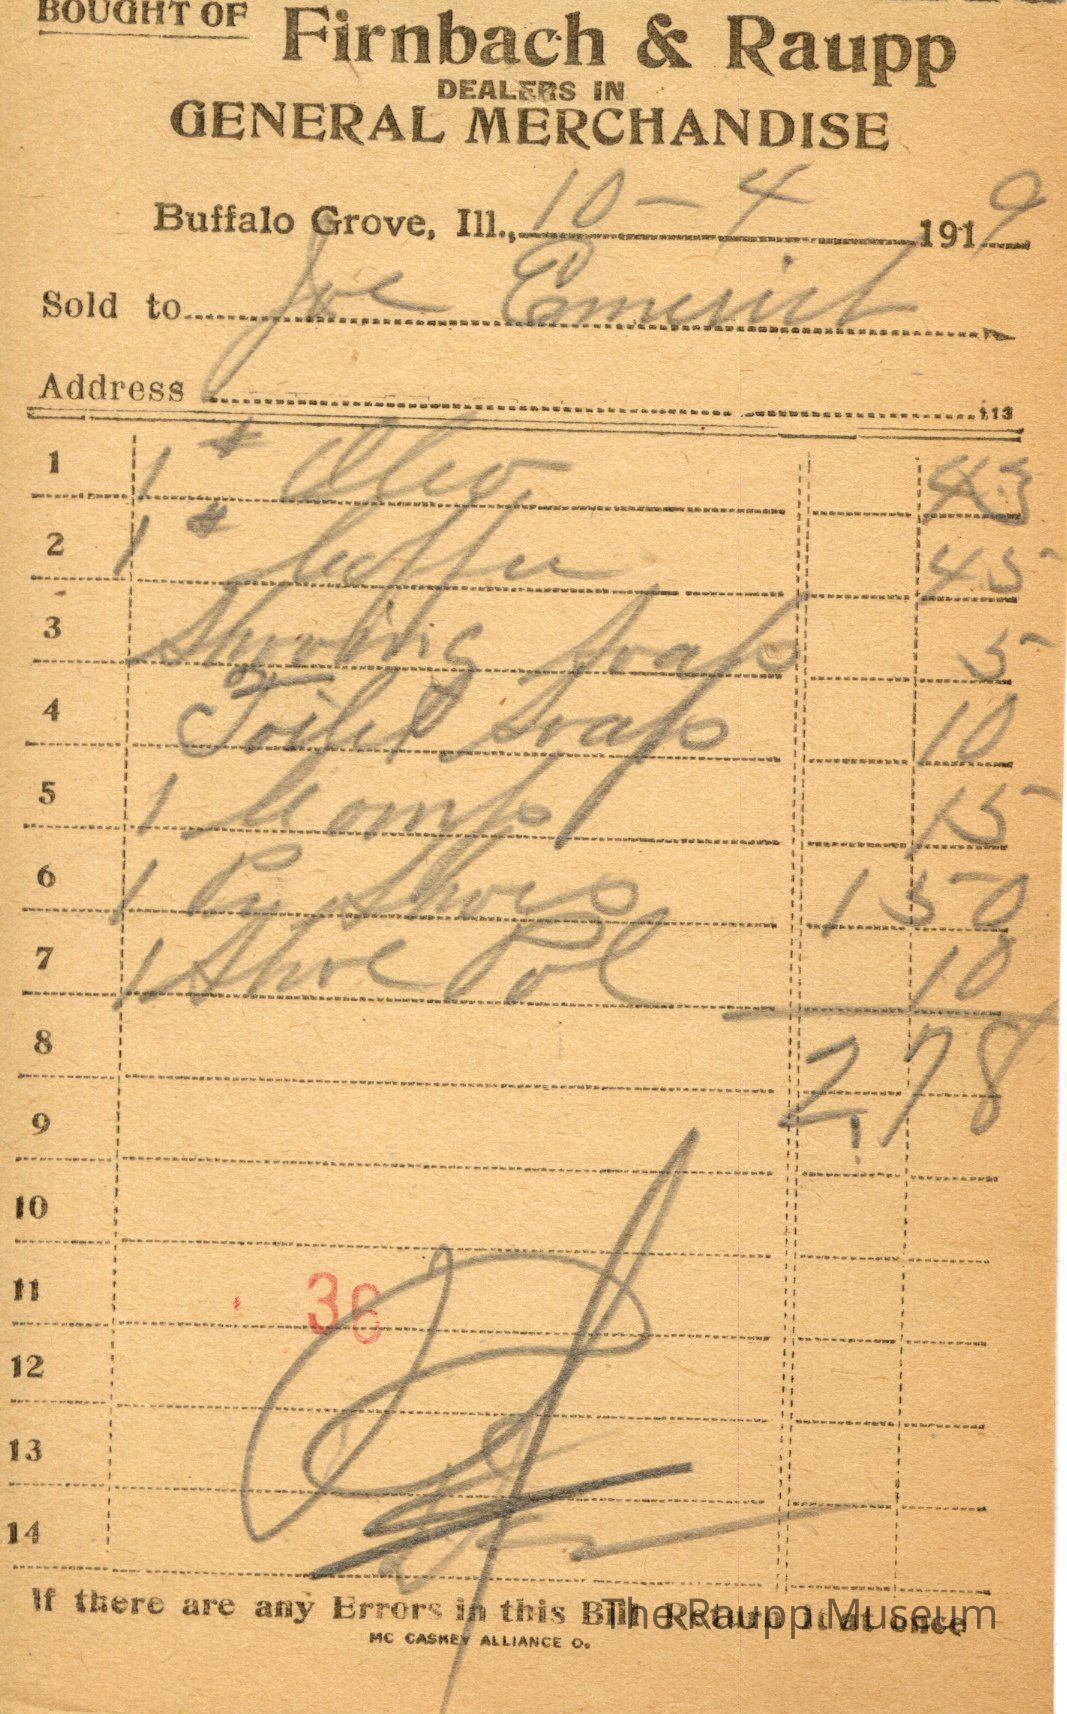 BOUGHT OF
Firnbach & Raupp
DEALERS IN
GENERAL MERCHANDISE
Buffalo Grove, Ill., 10 - 4 1919
Sold to Joe Emerich
Address
113
1 1 # Oleo 43
2 1 # Coffee 45
3 Shaving Soap 5
4 Toilet Soap 10
5 1 Comp 15
6 1 Pr Shoes 1 50
7 1 Shoe Pol 10
8 2.78
9
10
11 36
12
13
14
If there are any Errors in this Bill Return it at once
The Raupp Museum
MC CASKEY ALLIANCE O.